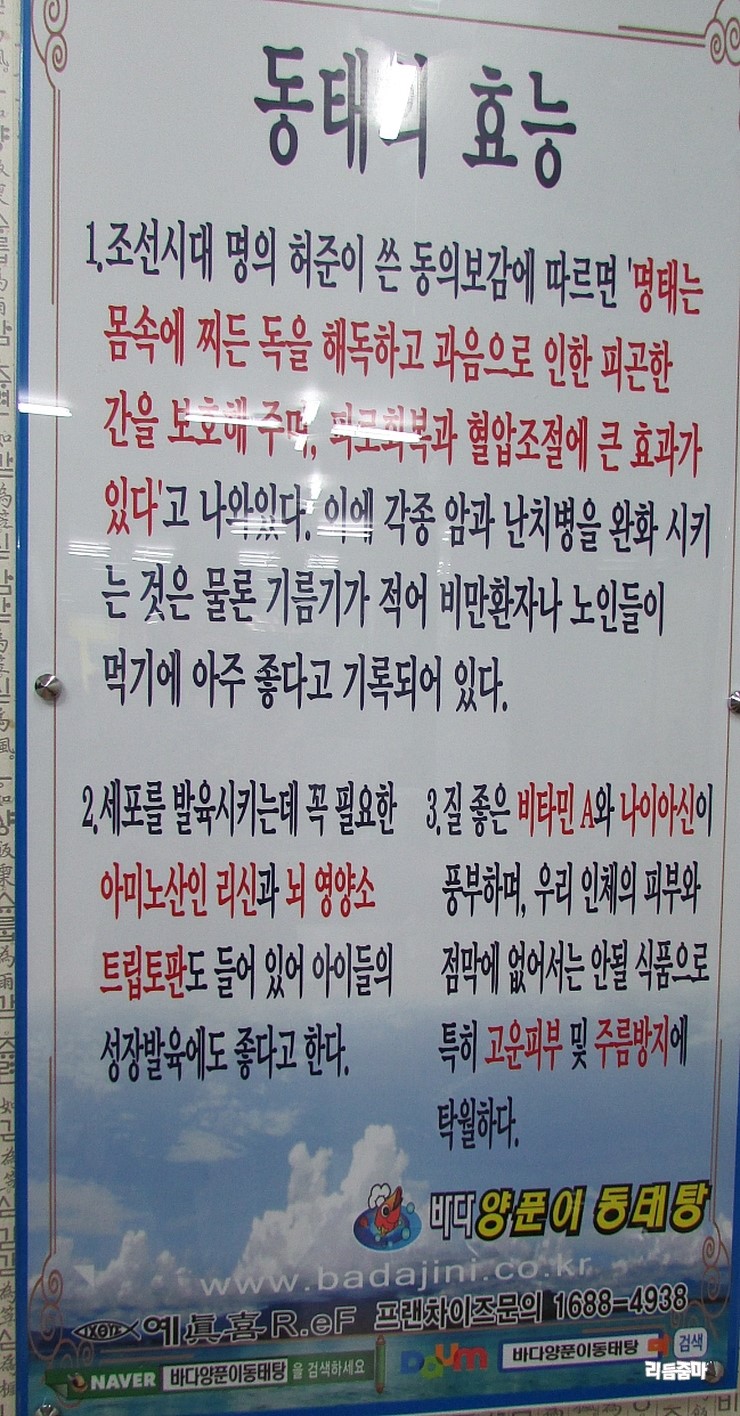 동태의 효능
1.조선시대 명의 허준이 쓴 동의보감에 따르면 '명태는
몸속에 찌든 독을 해독하고 과음으로 인한 피곤한
간을 보호해 주며, 피로회복과 혈압조절에 큰 효과가
있다'고 나와있다. 이에 각종 암과 난치병을 완화 시키
는 것은 물론 기름기가 적어 비만환자나 노인들이
먹기에 아주 좋다고 기록되어 있다.
2.세포를 발육시키는데 꼭 필요한
아미노산인 리신과 뇌 영양소
트립토판도 들어 있어 아이들의
성장발육에도 좋다고 한다.
3.질 좋은 비타민 A와 나이아신이
풍부하며, 우리 인체의 피부와
점막에 없어서는 안될 식품으로
특히 고운피부 및 주름방지에
탁월하다.
바다양푼이 동태탕
www.badajini.co.kr
ΙΧΘΥΣ 예眞喜R.eF 프랜차이즈문의 1688-4938
NAVER 바다양푼이동태탕 을 검색하세요
Daum 바다양푼이동태탕 검색
리듬줌마